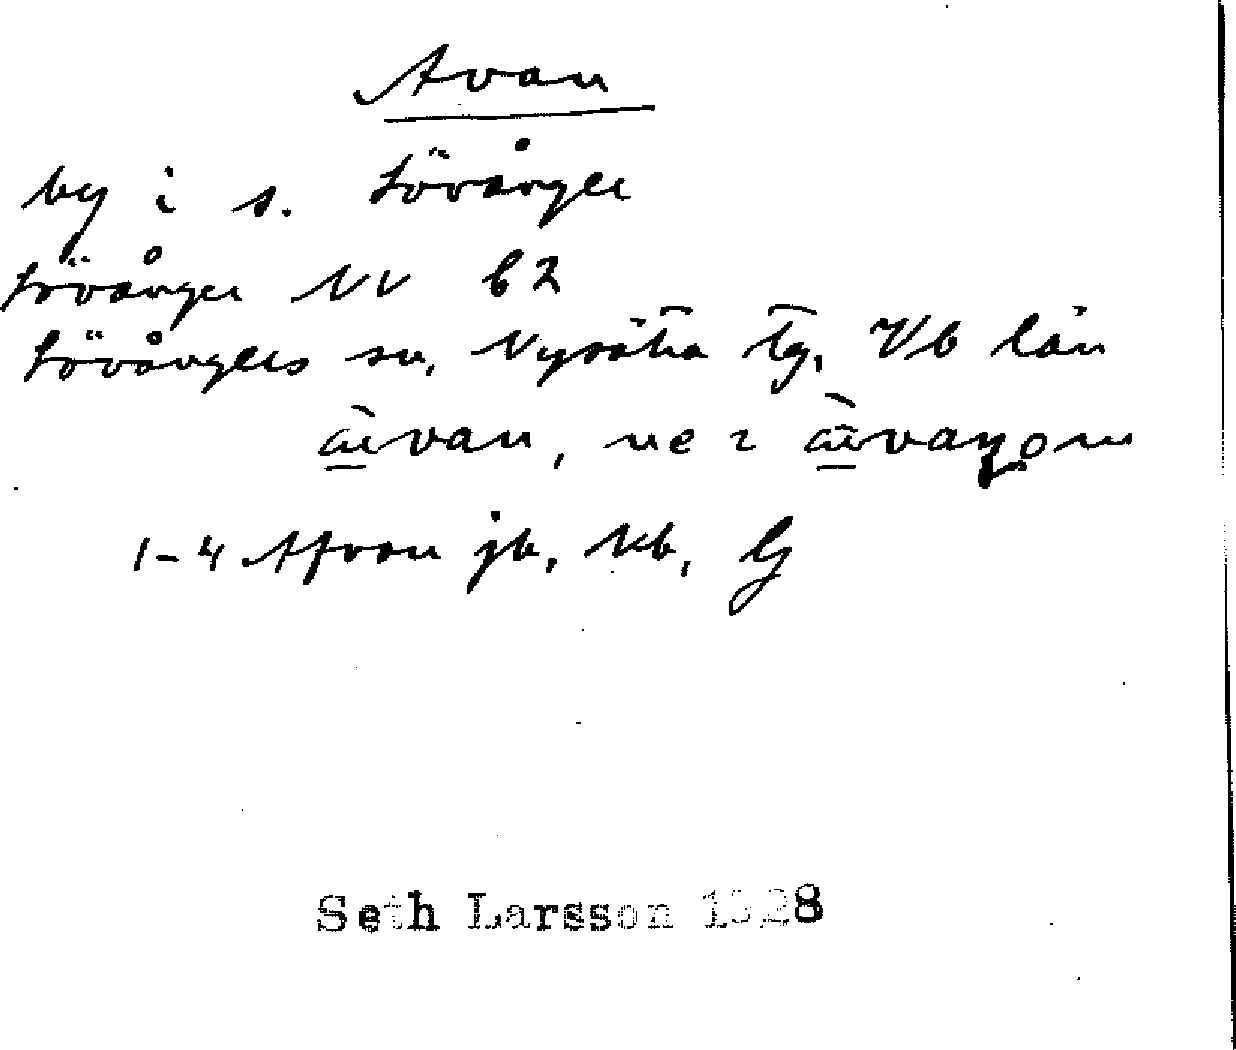 Avan
by i s. Lövånger
Lövånger NV b2
Lövångers sn, Nysätra tg, Vb län
1-4 Afvan jb, kb, G
Seth Larsson 1928